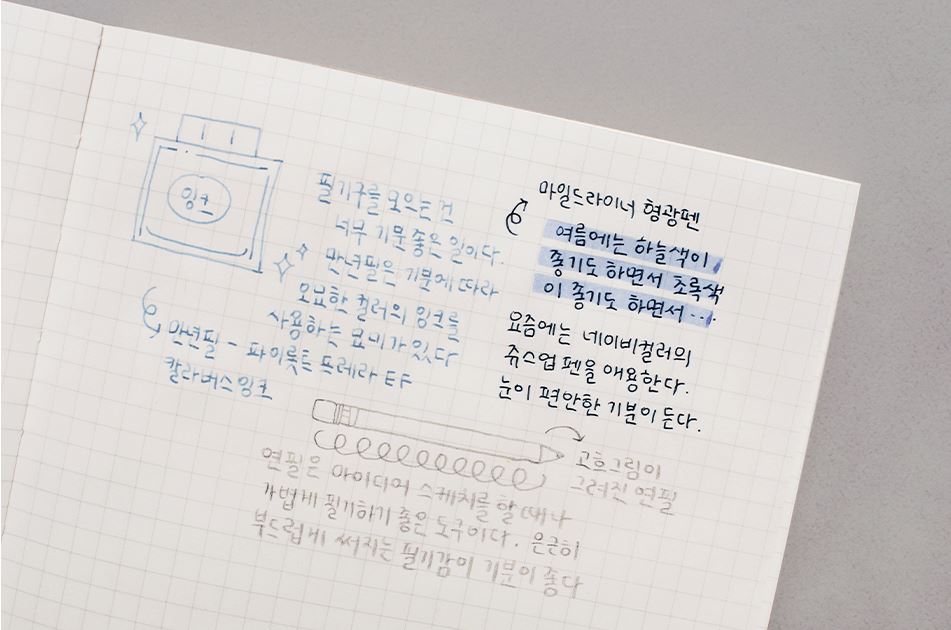 잉크
필기구를 모으는 건
너무 기분 좋은 일이다.
만년필은 기분에 따라
오묘한 컬러의 잉크를
사용하는 묘미가 있다
만년필 - 파이롯트 프레라 EF
칼라버스 잉크
마일드라이너 형광펜
여름에는 하늘색이
좋기도 하면서 초록색
이 좋기도 하면서 ....
요즘에는 네이비컬러의
쥬스업 펜을 애용한다.
눈이 편안한 기분이 든다.
고흐그림이
그려진 연필
연필은 아이디어 스케치를 할 때나
가볍게 필기하기 좋은 도구이다. 은근히
부드럽게 써지는 필기감이 기분이 좋다